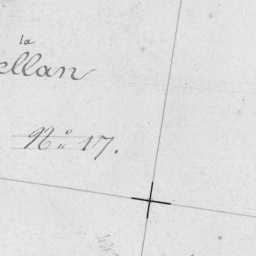 la
ellan
No 17.